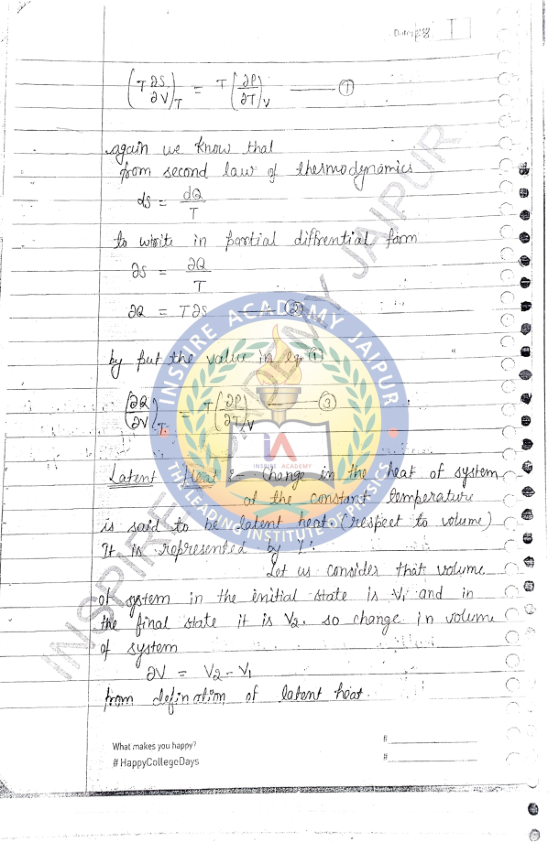 (T ∂S/∂V)_T = T (∂P/∂T)_V —— ①
again we know that
from second law of thermodynamics
ds = dQ/T
to write in partial diffrential form
∂S = ∂Q/T
∂Q = T∂S —— ②
by put the value in eqn ①
(∂Q/∂V)_T = T (∂P/∂T)_V —— ③
Latent Heat :- change in the heat of system
at the constant temperature
is said to be latent heat (respect to volume)
It is represented by 'L'.
Let us consider that volume
of system in the initial state is V₁ and in
the final state it is V₂. so change in volume
of system
∂V = V₂ - V₁
from defination of latent heat.
What makes you happy?
#HappyCollegeDays
INSPIRE ACADEMY JAIPUR
INSPIRE ACADEMY JAIPUR
iA
INSPIRE ACADEMY
THE LEADING INSTITUTE OF PHYSICS